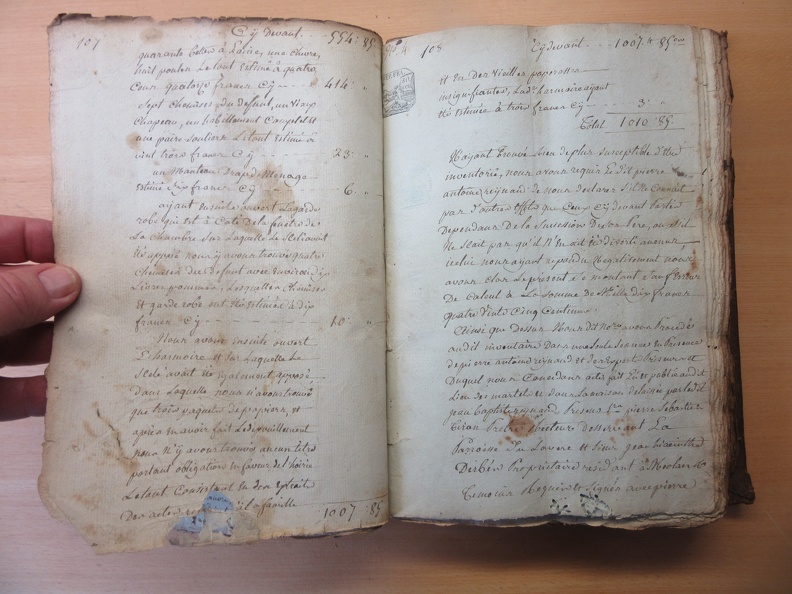 107
Cy devant . . . 554 : 85
quarante toises à laine, une chevre,
huit poules Le tout Estimé a quatre
Cens quatorze francs Cy 414 : "
Sept chemises du defunt, un vieux
Chapeau, un habillement Complet et
une paire souliers Le tout Estimé a
vint trois francs Cy 23 : "
un Manteau drap de Menage
Estimé six francs Cy 6 : "
ayant ensuite ouvert La garde
robe qui est à Coté de la fenetre de
La Chambre Sur Laquelle Le Scelé avoit
été apposé nous y avons trouvé quatre
Chemises du defunt avec environ dix
Livres Lesquelles Chemises
et garde robe ont été Estimées a dix
francs Cy 10 : "
Nous avons ensuite ouvert
L'harmoire et Sur Laquelle Le
Scelé avoit été egalement apposé
Dans Laquelle nous n'avons trouvé
que trois paquets de papiers, et
après en avoir fait Le depouillement
nous n'y avons trouvé aucun titre
portant obligation en faveur de l'hoirie
Le tout Consistant en des extraits
Des actes de famille
1007 : 85
108
Cy devant . . 1007 # 85
et en des vieilles paperasses
insignifiantes, La dte harmoire ayant
été estimée à trois francs Cy 3 : "
Total 1010 : 85
N'ayant trouvé rien de plus susceptible d'être
inventorié, nous avons requis Le dit pierre
antoine reynaud de nous declarer s'il ne Connait
pas d'autres effets que Ceux Cy devant
Dependans de la Succession de son Pere, ou s'il
ne Scait pas qu'il n'en ait été diverti aucun
icelui nous ayant repondu Negativement nous
avons Clos Le présent et Montant Sauf Erreur
De Calcul à La Somme de Mille dix francs
quatre Vints Cinq Centimes
Ainsi que dessus Nous dit avons Procedé
audit inventaire Dans une Seule Seance en Présence
de pierre antoine reynaud et
Duquel nous Concedons acte fait Et publié audit
Lieu des martels et dans La maison delaissée par ledit
jean baptiste reynaud presens pierre Sebastien
Giran Prêtre Recteur desservant La
Paroisse Du Lavere et Sieur jean hiacinthe
Derbès Proprietaire residant à
Temoins Requis et Signés avec pierre